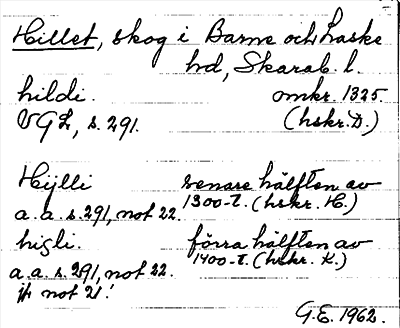 Hillet, skog i Barne och Laske
hd, Skarab. l.
hildi. omkr. 1325.
VGL, s. 291. (hskr. D.)
Hijlli senare hälften av
a. a. s. 291, not 22. 1300-t. (hskr. H.)
higli. förra hälften av
a. a. s. 291, not 22. 1400-t. (hskr. K.)
jfr not 21!
G.E. 1962.